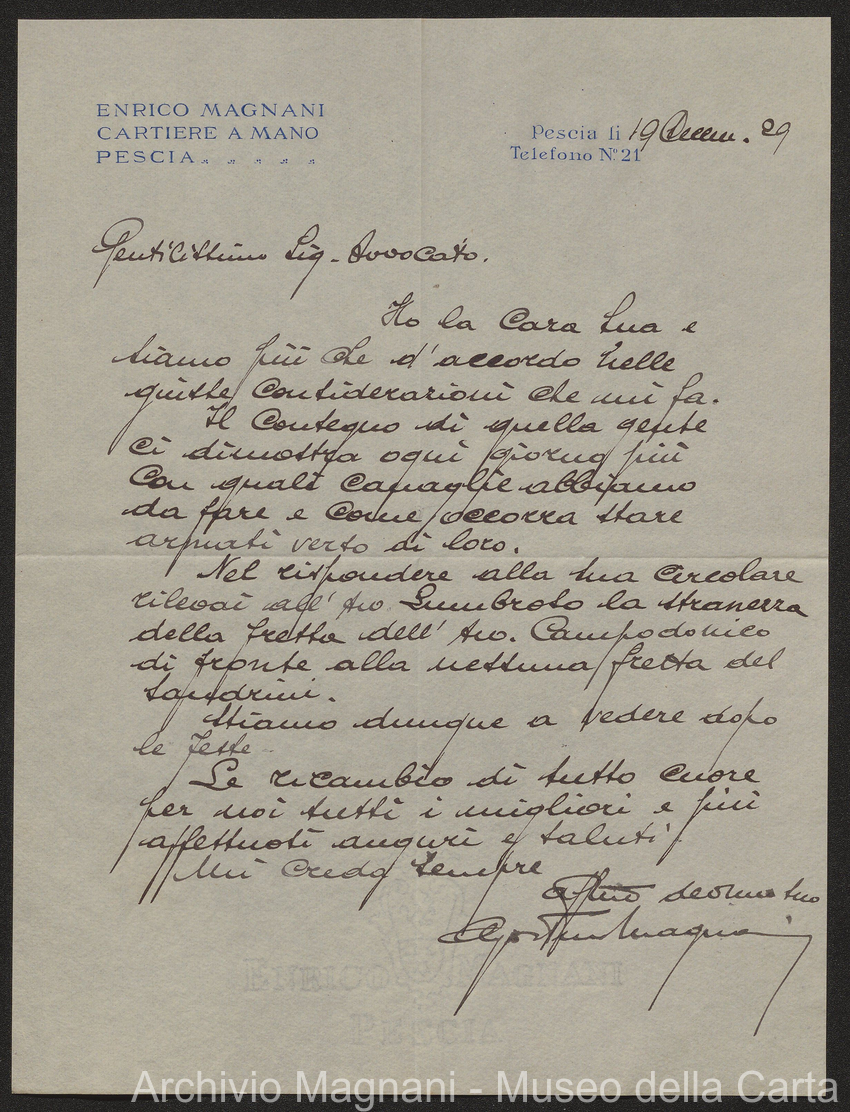 ENRICO MAGNANI
CARTIERE A MANO
PESCIA
Pescia li 19 Decem. 29
Telefono Nº 21
Gentilissimo Sig. Avvocato.
Ho la cara sua e
siamo più che d'accordo nelle
giuste considerazioni che mi fa.
Il contegno di quella gente
ci dimostra ogni giorno più
con quali canaglie abbiamo
da fare e come occorra stare
armati verso di loro.
Nel rispondere alla sua circolare
rilevai all' Avv. Lumbroso la stranezza
della fretta dell' Avv. Campodonico
di fronte alla nessuna fretta del
Sandrini.
Stiamo dunque a vedere dopo
le feste
Le ricambio di tutto cuore
per noi tutti i migliori e più
affettuosi auguri e saluti
Mi creda sempre
affmo devmo suo
Magnani
ENRICO MAGNANI
PESCIA
Archivio Magnani - Museo della Carta